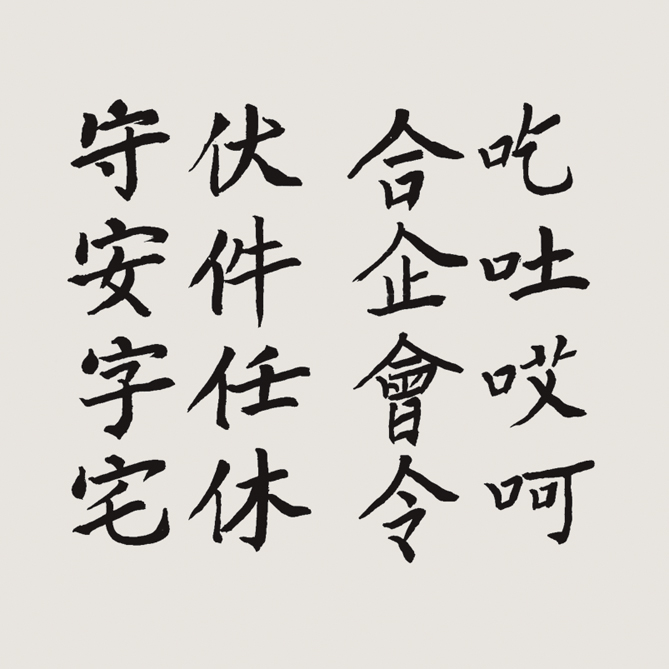 吃吐哎呵
合企會令
伏件任休
守安字宅